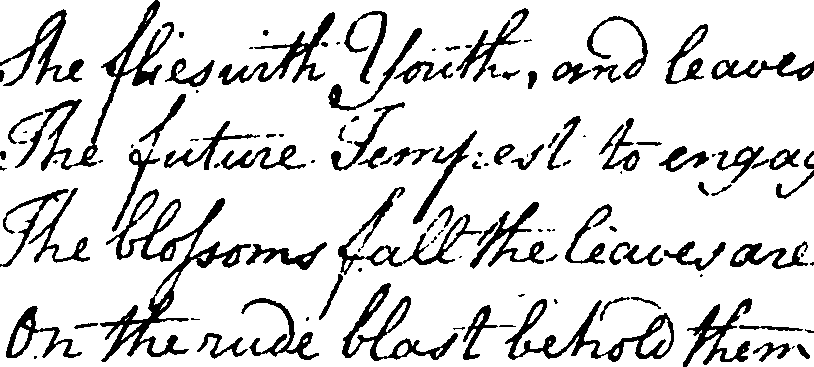 She flies with Youth, and leaves
The future Tempest to engag
The blossoms fall the leaves are
On the rude blast behold them